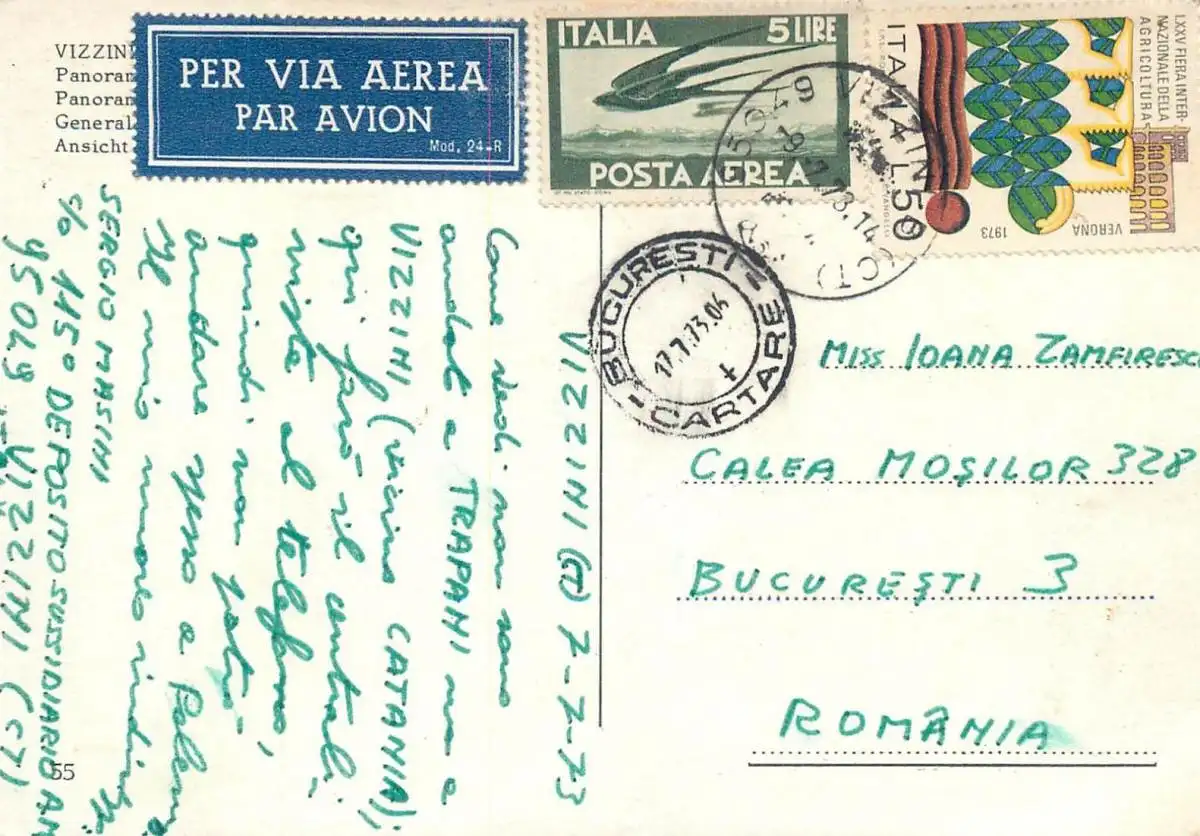 VIZZINI
Panoram
Panoram
General
Ansicht
PER VIA AEREA
PAR AVION
Mod. 24-R
ITALIA 5 LIRE
POSTA AEREA
ITALIA L.50
LXXV FIERA INTER-
NAZIONALE DELLA
AGRICOLTURA
VERONA
1973
95049 VIZZINI (CT)
7.73.14
BUCURESTI
17.7.73.06
CARTARE
VIZZINI (CT) 7-7-73
Come vedi non sono
andato a TRAPANI ma a
VIZZINI (vicino CATANIA);
qui farò il centrali-
nista al telefono,
quindi non potrò
andare spesso a Palermo
Il mio nuovo indirizzo:
SERGIO MASINI
c/o 115° DEPOSITO SUSSIDIARIO AM
95049 VIZZINI (CT)
MISS IOANA ZAMFIRESC
CALEA MOŞILOR 328
BUCUREŞTI 3
ROMÂNIA
55